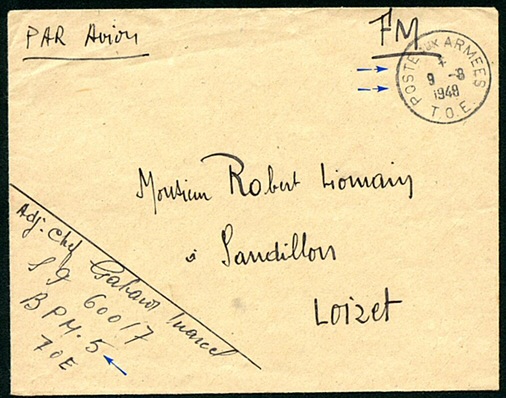 PAR Avion
FM
POSTE AUX ARMEES
*
9 -8
1948
T.O.E.
Monsieur Robert Liomain
à Sandillon
Loizet
Adj. Chef Marcel
SP 60017
BPM.5
TOE